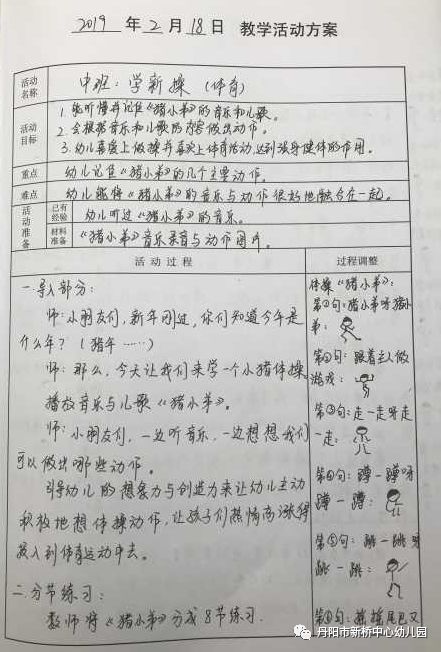 2019 年 2 月 18 日 教学活动方案
活动名称
中班：学新操（体育）
活动目标
1. 能听懂并记住《猪小弟》的音乐和儿歌。
2. 会根据音乐和儿歌的内容做出动作。
3. 幼儿喜爱上做操并喜爱上体育活动，达到强身健体的作用。
重点
幼儿记住《猪小弟》的几个主要动作。
难点
幼儿能将《猪小弟》的音乐与动作很好地融合在一起。
活动准备
已有经验
幼儿听过《猪小弟》的音乐。
材料准备
《猪小弟》音乐录音与动作图片。
活动过程
一.导入部分：
师：小朋友们，新年刚过，你们知道今年是
什么年？（猪年……）
师：那么，今天让我们来学一个小猪体操。
播放音乐与儿歌《猪小弟》。
师：小朋友们，一边听音乐，一边想想我们
可以做出哪些动作。
引导幼儿的想象力与创造力来让幼儿主动
积极地想体操动作，让孩子们热情高涨得
投入到体育运动中去。
二.分节练习：
教师将《猪小弟》分成8节练习.
过程调整
体操《猪小弟》：
第①句：猪小弟呀猪小
弟：
第②句：跟着主人做
游戏：
第③句：走一走呀走
一走：
第④句：蹲一蹲呀
蹲一蹲：
第⑤句：跳一跳呀
跳一跳：
第⑥句：摇摇尾巴又
丹阳市新桥中心幼儿园